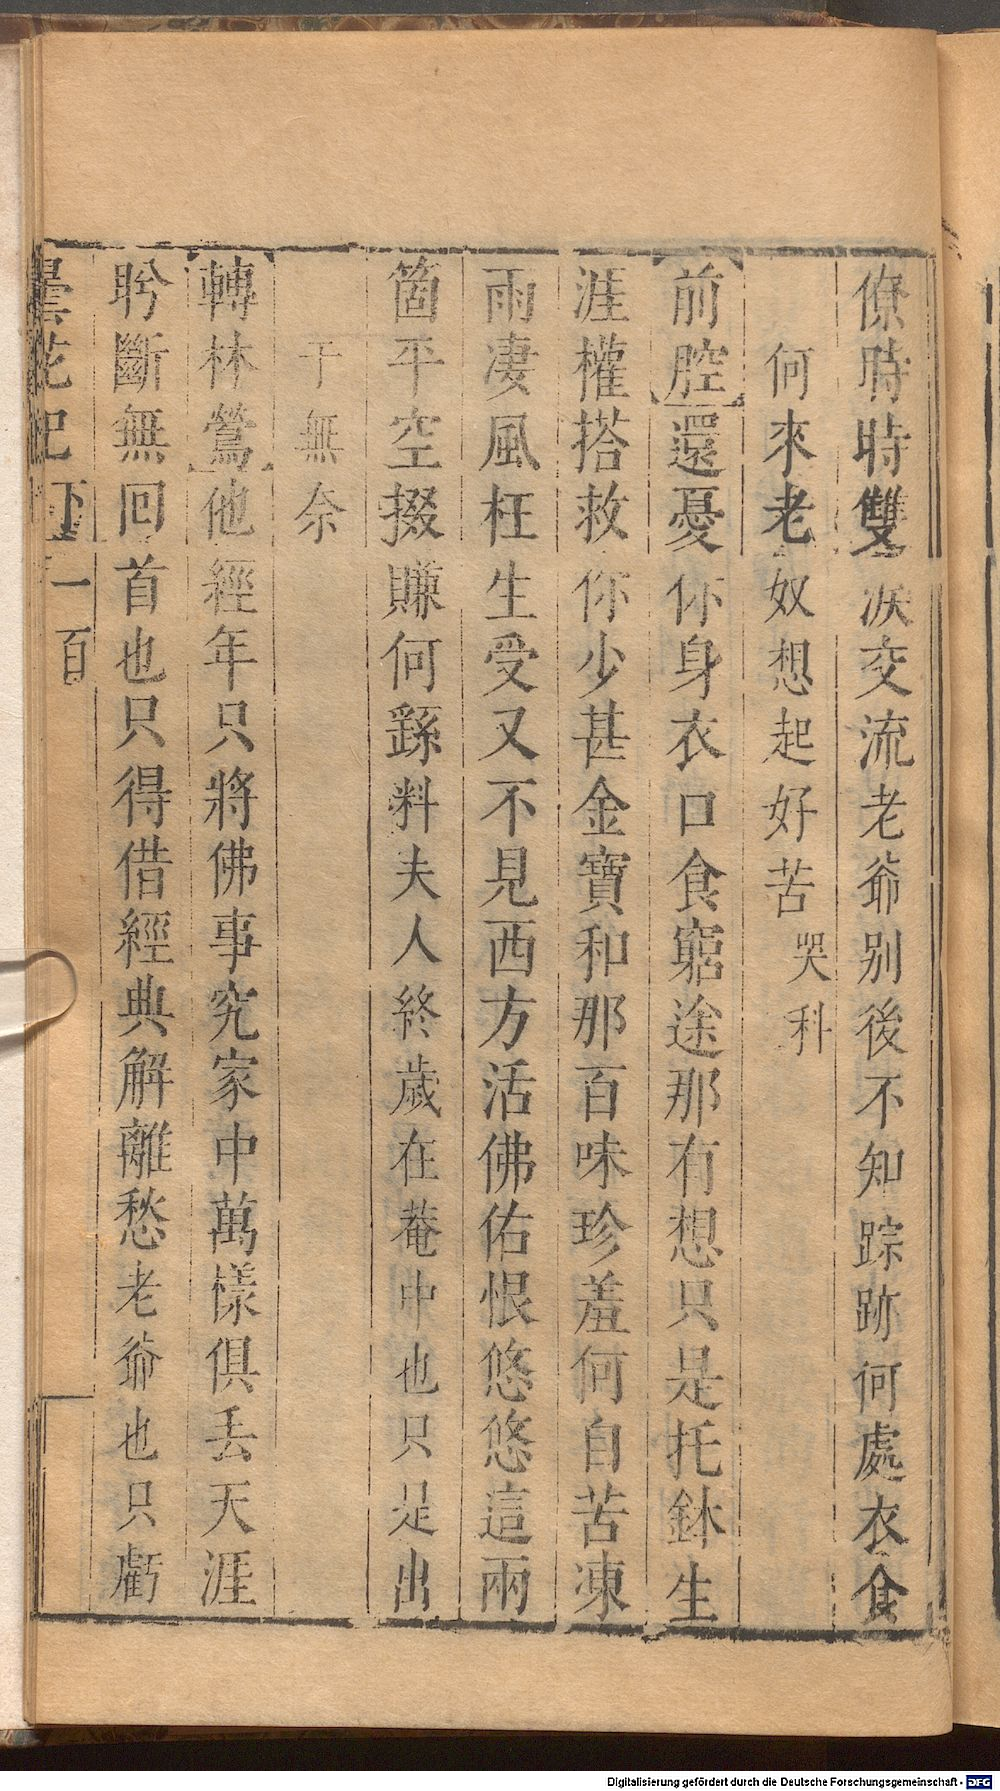 僚時時雙淚交流老爺别後不知踪跡何處衣食
何來老奴想起好苦哭科
前腔還憂你身衣口食窮途那有想只是托鉢生
涯權搭救你少甚金寶和那百味珍羞何自苦凍
雨凄風枉生受又不見西方活佛佑恨悠悠這兩
箇平空掇賺何繇料夫人終歲在菴中也只是出
于無奈
轉林鶯他經年只將佛事究家中萬樣俱丢天涯
盻斷無回首也只得借經典解離愁老爺也只虧
曇花記 下 一百
Digitalisierung gefördert durch die Deutsche Forschungsgemeinschaft - DFG